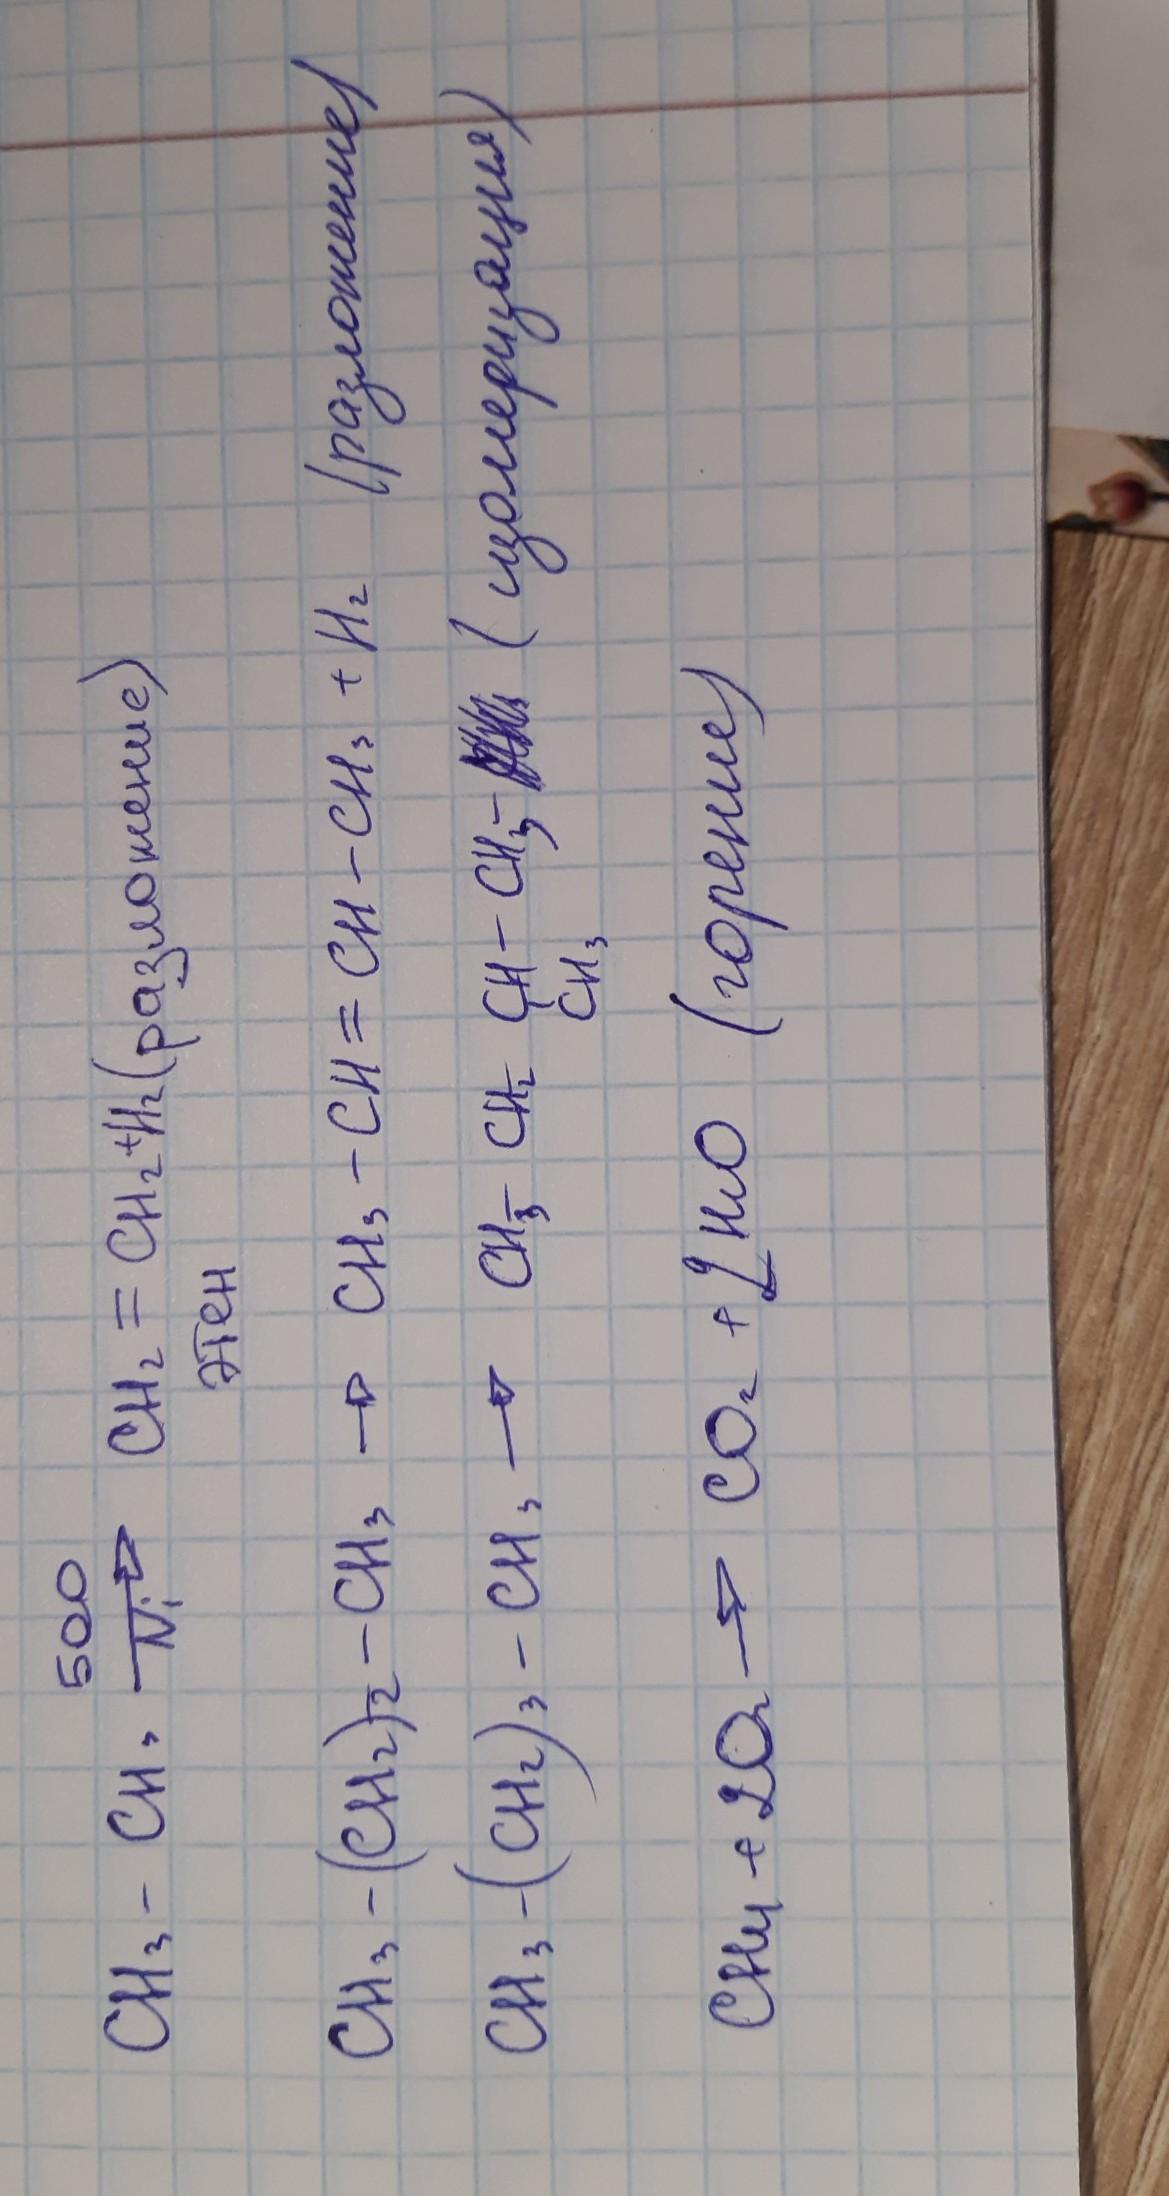 500
CH₃ - CH₃ →Ni CH₂ = CH₂ + H₂ (разложение)
этен
CH₃ - (CH₂)₂ - CH₃ → CH₃ - CH = CH - CH₃ + H₂ (разложение)
CH₃ - (CH₂)₃ - CH₃ → CH₃ - CH₂ CH - CH₃ - (изомеризация)
CH₃
CH₄ + 2O₂ → CO₂ + 2H₂O (горение)